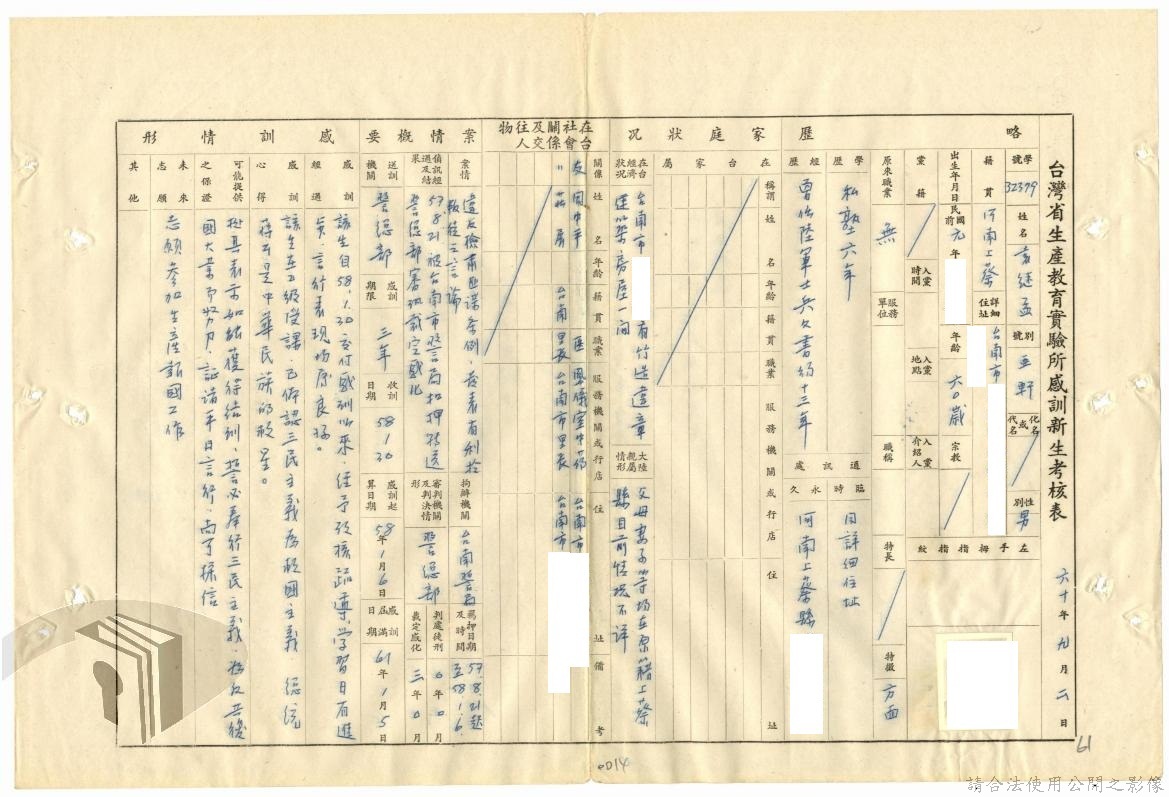 台灣省生產教育實驗所感訓新生考核表
六十年九月二日
略歷
學號
32379
姓名
別號
亞軒
化名或代名
性別
男
籍貫
河南上蔡
詳細住址
台南市
左手拇指指紋
出生年月日
民國前元年
年齡
六〇歲
宗教
黨籍
入黨時間
入黨地點
入黨介紹人
原來職業
無
服務單位
職稱
特長
特徵
方面
學歷
私塾六年
經歷
曾任陸軍士兵文書約十三年
通訊處
臨時
同詳細住址
永久
河南上蔡縣
家庭狀況
在台家屬
稱謂
姓名
年齡
籍貫
職業
服務機關或行店
住址
在台經濟狀況
台南市
有竹造違章
建築房屋一間
大陸親屬情形
父母妻子等均在原籍上蔡
縣目前情況不詳
在台社會關係及交往人物
關係
姓名
年齡
籍貫
職業
服務機關或行店
住址
備考
友
台南市
〃
台南
里長
台南市里長
台南市
案情概要
案情
違反檢肅匪諜條例,發表有利於
叛徒之言論
拘辦機關
台南警局
羈押日期及時間
57.8.21起
至58.1.6.
偵訊經過及結果
57.8.21被台南市警局扣押轉送
警總部審理裁定感化
審判機關及判決情形
警總部
判處徒刑
0年0月
裁定感化
三年0月
送訓機關
警總部
感訓期限
三年
收訓日期
58.1.30
感訓起算日期
58年1月6日
感訓屆滿日期
61年1月5日
感訓情形
感訓經過
該生自58.1.30交付感訓以來,經予考核疏導,學習日有進
步,言行表現均屬良好。
感訓心得
該生在五級受課,已俯認三民主義為救國主義,總統
蔣公是中華民族的救星。
可能提供之保證
據其表示如能獲得結訓,誓必奉行三民主義,為反共復
國大業而努力,証諸平日言行,尚可採信
未來志願
志願參加生產報國工作
其他
0014
61
請合法使用公開之影像